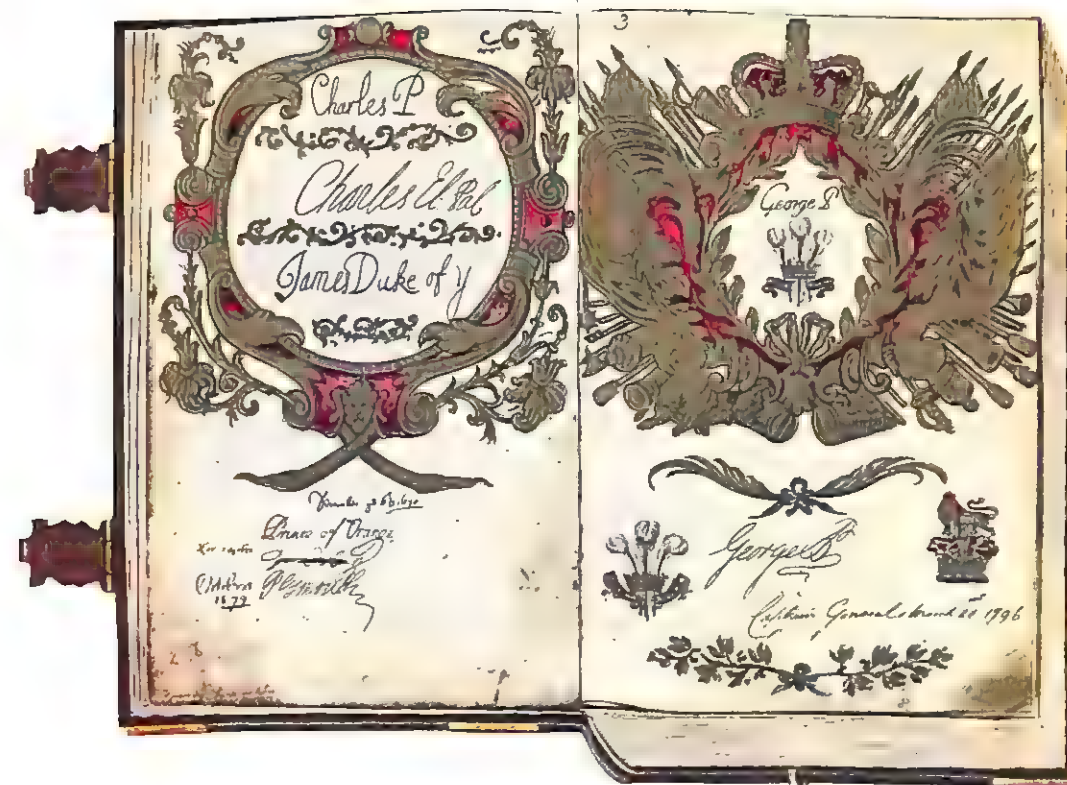 Charles P
Charles El. Pal
James Duke of y
Prince of Orange
October
1679
Plymouth
3
George P
George P
Captain General March 22 1796